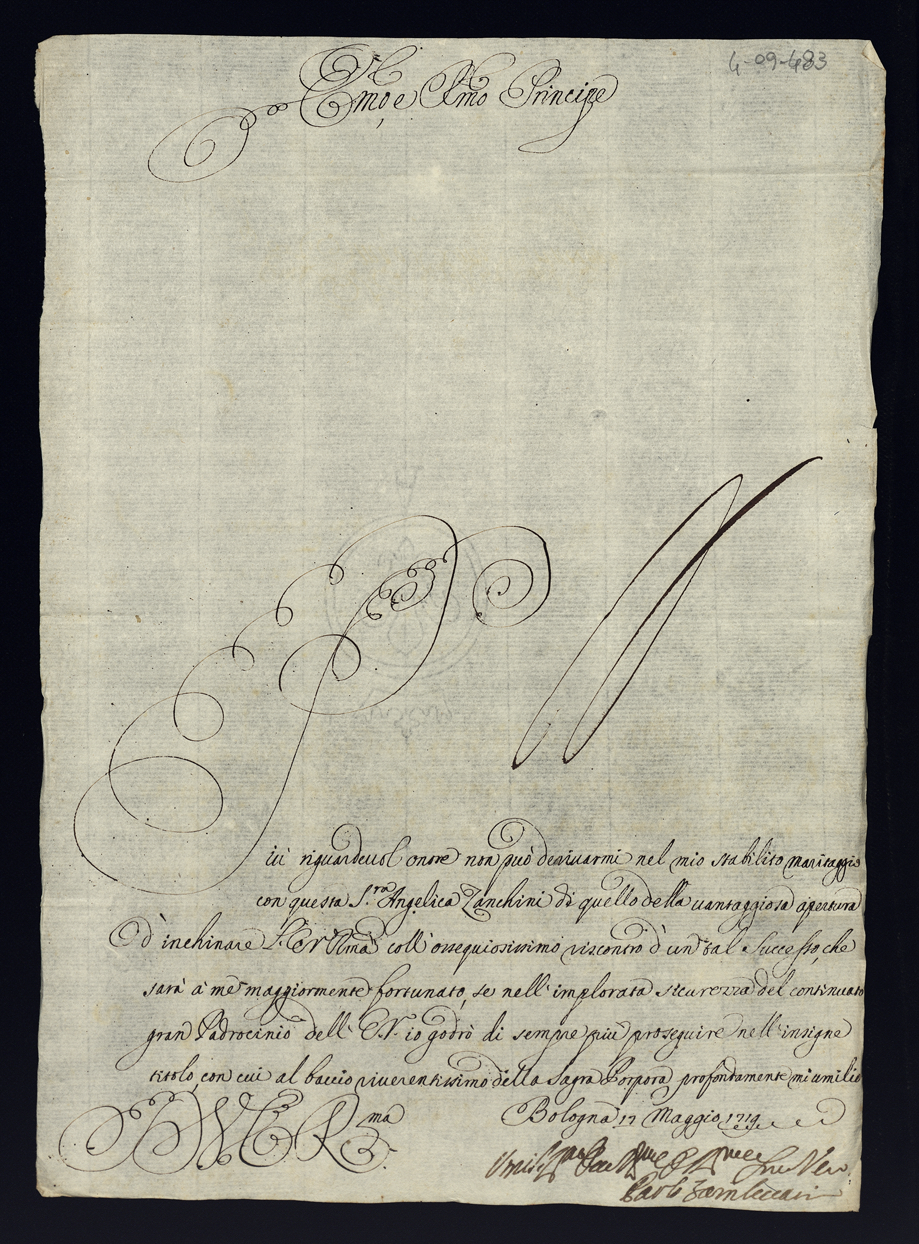 4-09-483
Emo, e Rmo Principe
Più riguardevol onore non può derivarmi nel mio stabilito maritaggio
con questa S.ra Angelica Zanchini di quello della vantaggiosa apertura
d'inchinare V. Er Rma coll'ossequiosissimo riscontro d'un tal Successo, che
sarà à me maggiormente fortunato, se nell'implorata sicurezza del continuato
gran Padrocinio dell'E.V. io godrò di sempre più proseguire nell'insigne
titolo, con cui al baccio riverentissimo della Sagra Porpora profondamente mi umilio
Bologna 17 Maggio 1719
V. E. Rma